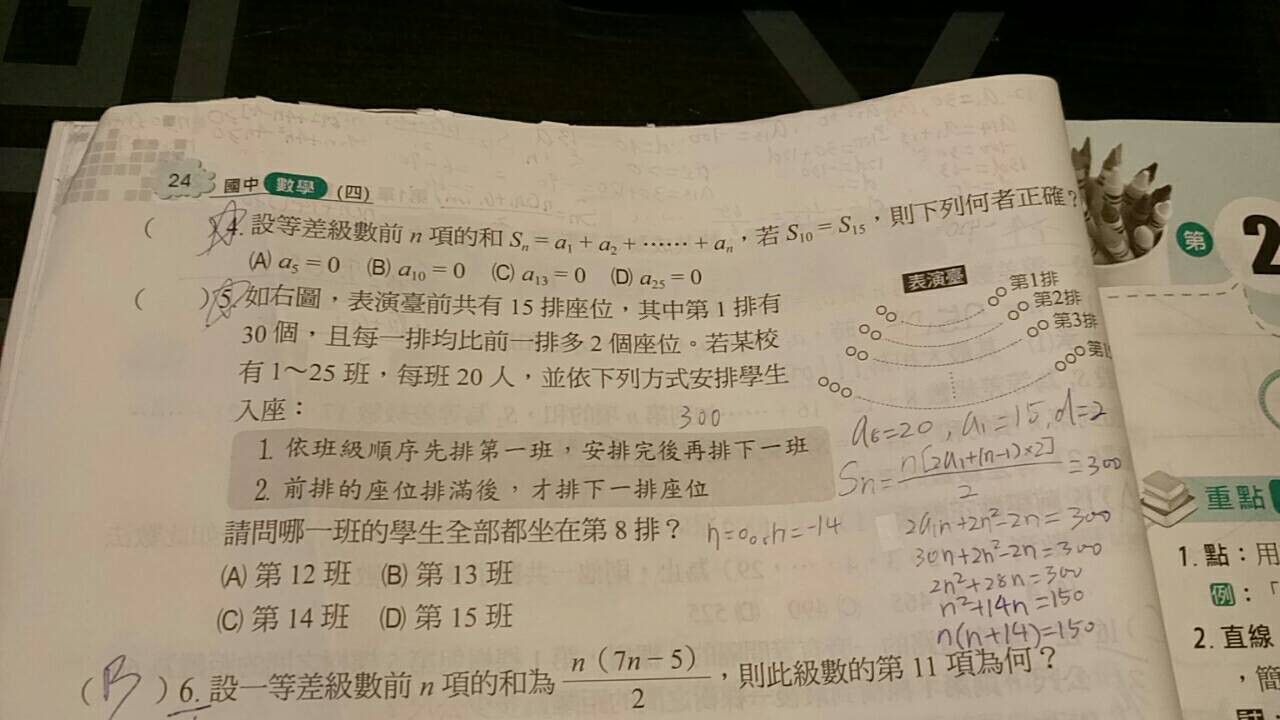 24 國中 數學 (四)
( ) 4. 設等差級數前 n 項的和 Sn = a1 + a2 + …… + an，若 S10 = S15，則下列何者正確？
(A) a5 = 0 (B) a10 = 0 (C) a13 = 0 (D) a25 = 0
( ) 5. 如右圖，表演臺前共有 15 排座位，其中第 1 排有
30 個，且每一排均比前一排多 2 個座位。若某校
有 1～25 班，每班 20 人，並依下列方式安排學生
入座：
300
1. 依班級順序先排第一班，安排完後再排下一班
2. 前排的座位排滿後，才排下一排座位
請問哪一班的學生全部都坐在第 8 排？
(A) 第 12 班 (B) 第 13 班
(C) 第 14 班 (D) 第 15 班
表演臺
第1排
第2排
第3排
第1
a1=15, d=2
Sn = n[2a1+(n-1)×2] / 2 = 300
2a1n+2n²-2n=300
30n+2n²-2n=300
2n²+28n=300
n²+14n=150
n(n+14)=150
(B) 6. 設一等差級數前 n 項的和為 n（7n－5）/ 2，則此級數的第 11 項為何？
第 2
重點
1. 點：用
例：「
2. 直線
，簡